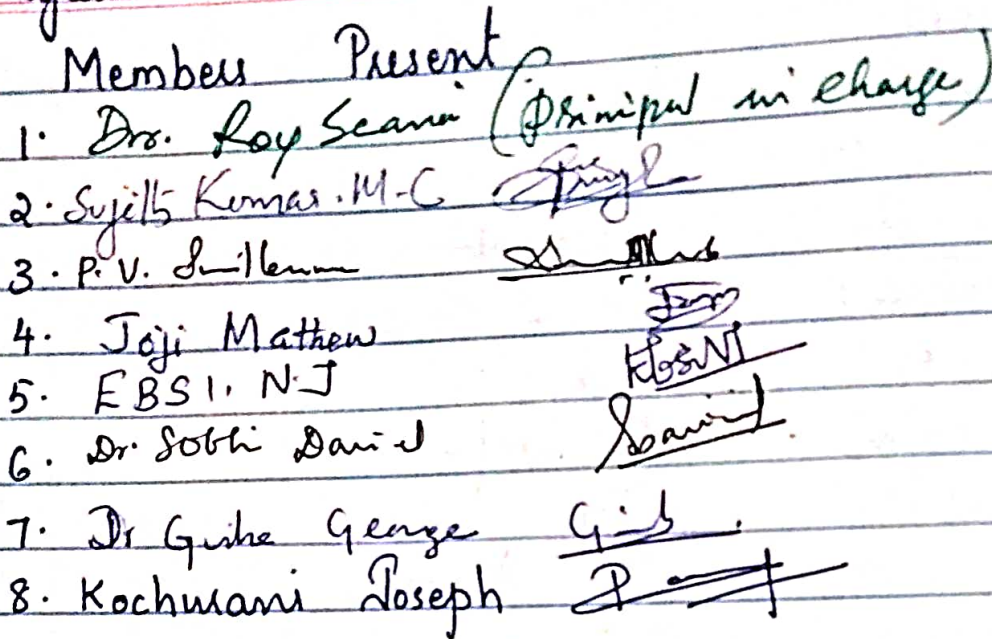 Members Present
1. Dr. Roy Scaria (Principal in charge)
2. Sujith Kumar. M-C
3. P. V.
4. Joji Mathew
5. EBSI. N.J
6. Dr. Sobhi Daniel
7. Dr George
8. Kochurani Joseph